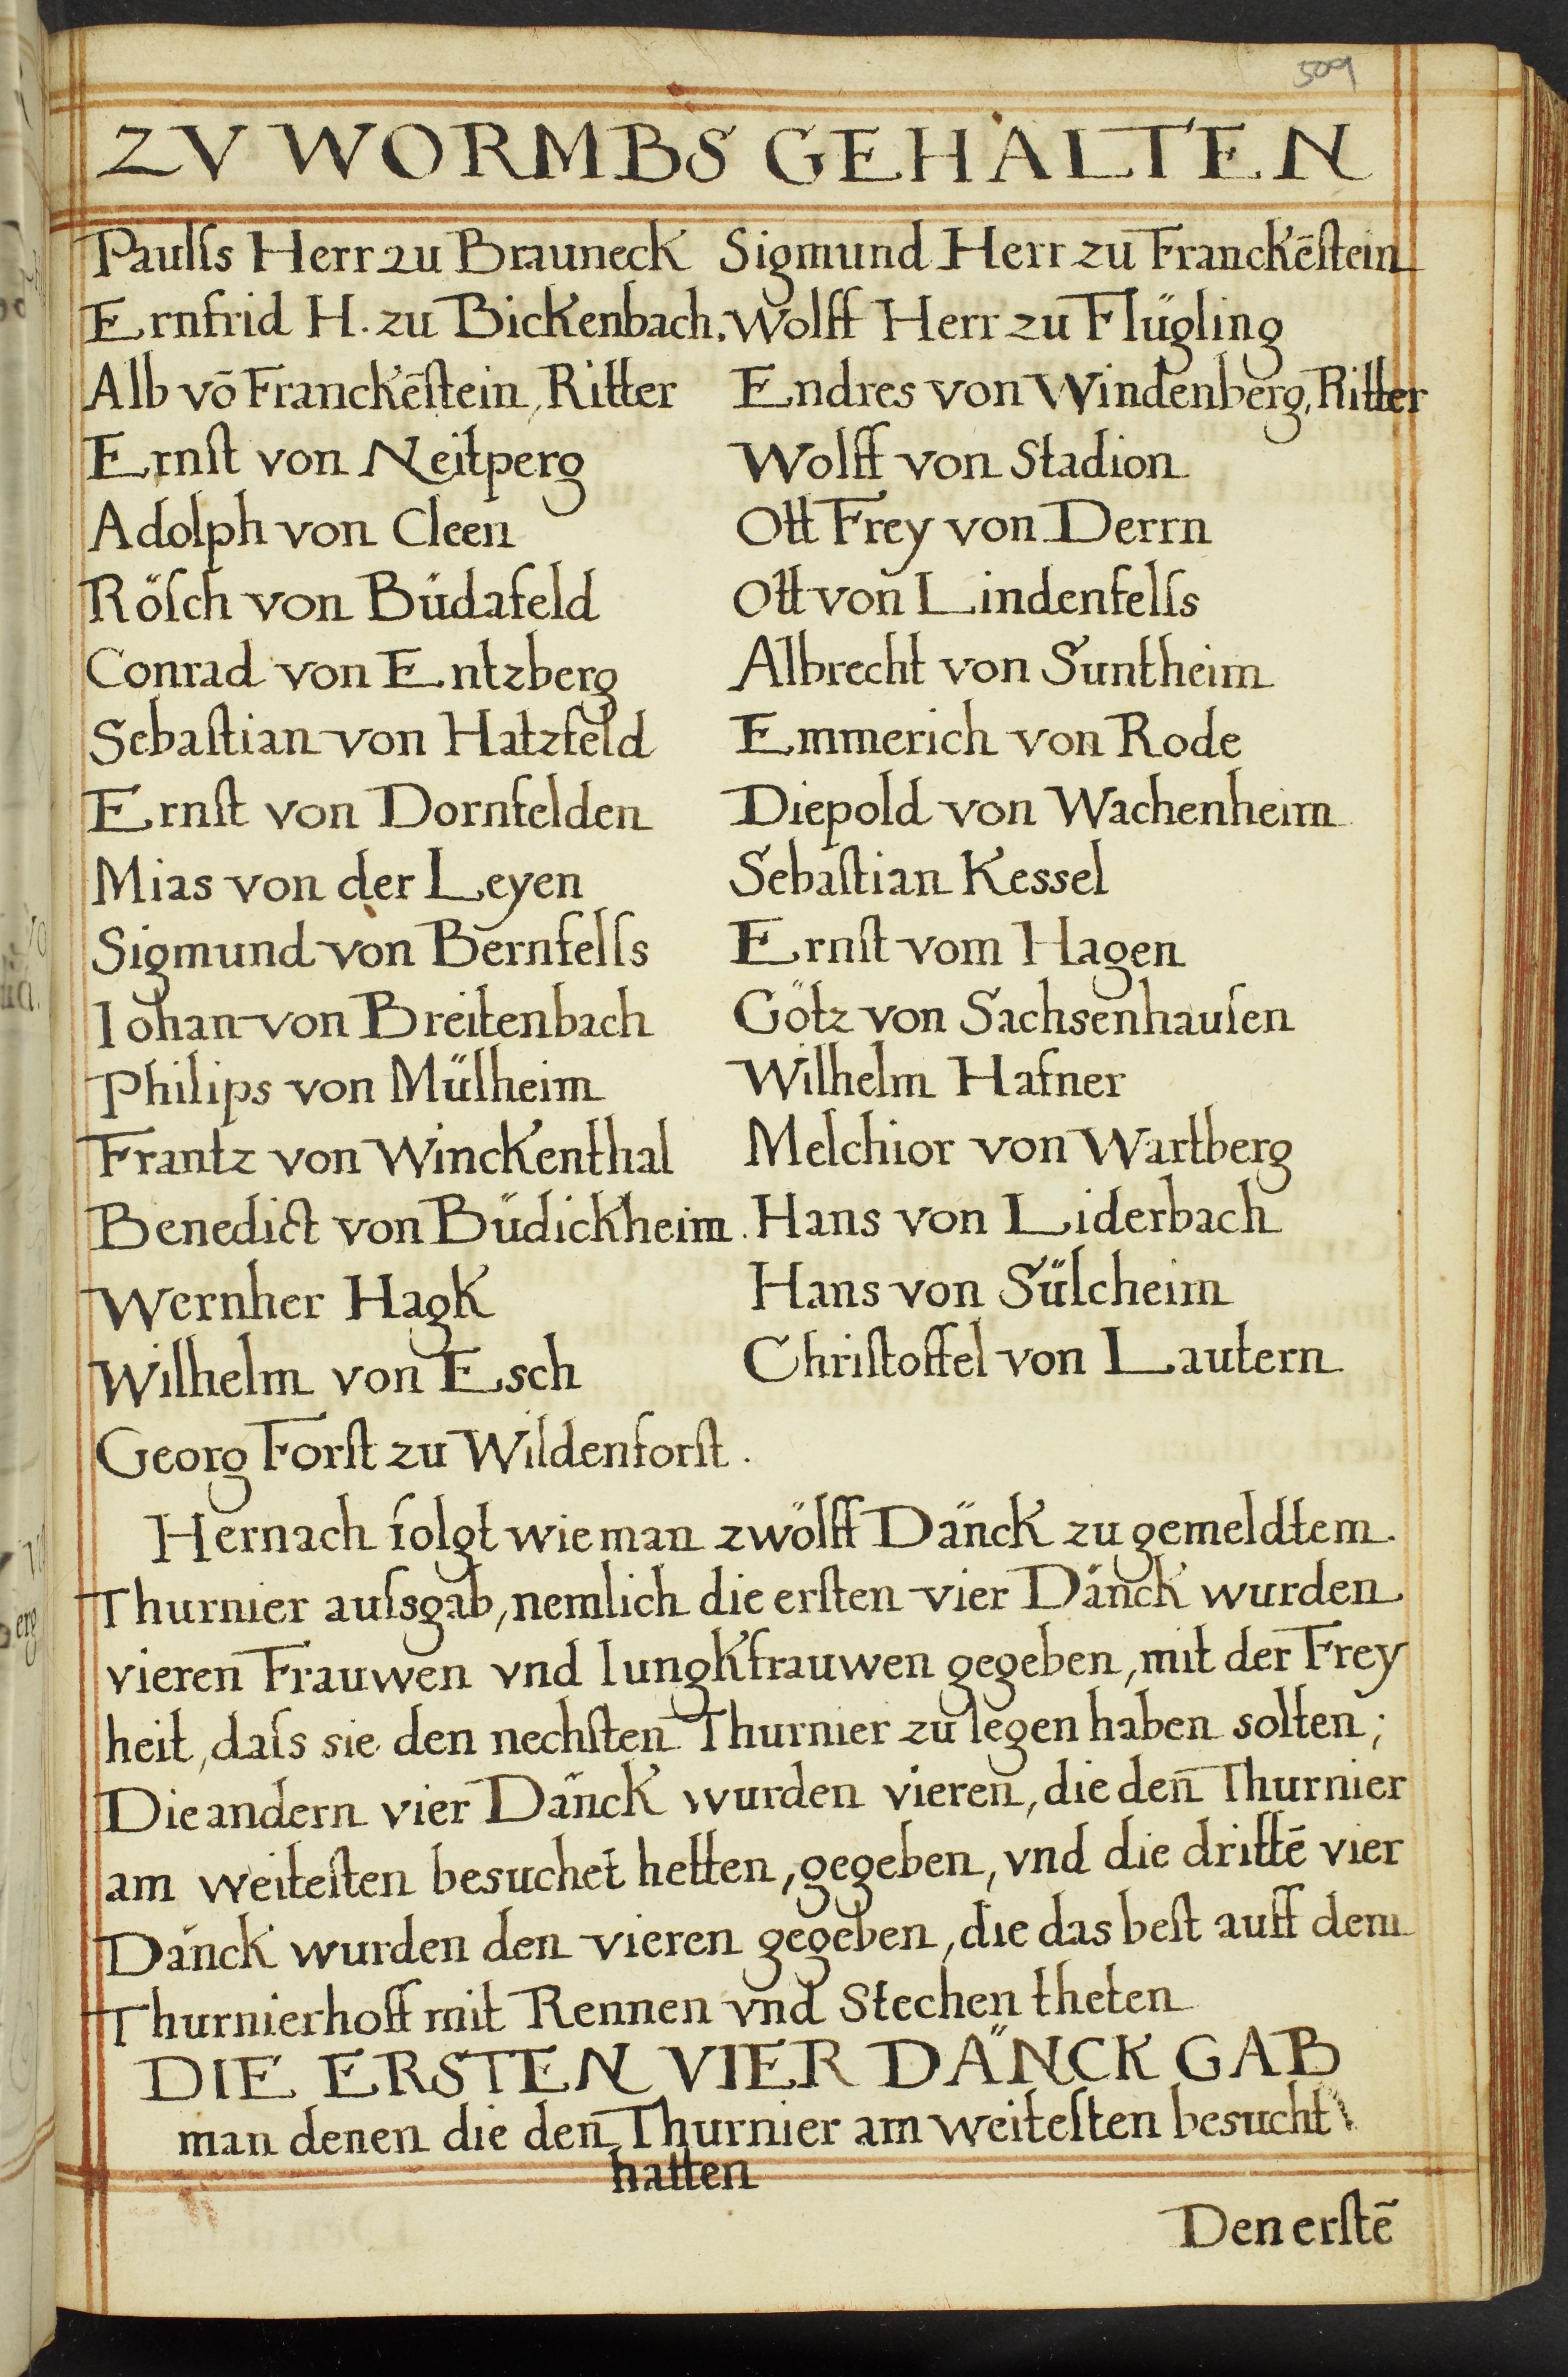 509
ZV WORMBS GEHALTEN
Paulſs Herr zu Brauneck
Ernfrid H. zu Bickenbach.
Alb vō Franckēſtein, Ritter
Ernſt von Neitperg
Adolph von Cleen
Röſch von Büdafeld
Conrad von Entzberg
Sebaſtian von Hatzfeld
Ernſt von Dornfelden
Mias von der Leyen
Sigmund von Bernfelſs
Iohan von Breitenbach
Philips von Mülheim
Frantz von Winckenthal
Benedict von Büdickheim.
Wernher Hagk
Wilhelm von Esch
Georg Forſt zu Wildenforſt.
Sigmund Herr zu Franckēſtein
Wolff Herr zu Flügling
Endres von Windenberg, Ritter
Wolff von Stadion
Ott Frey von Derrn
Ott von Lindenfelſs
Albrecht von Suntheim
Emmerich von Rode
Diepold von Wachenheim
Sebaſtian Kessel
Ernſt vom Hagen
Götz von Sachsenhauſen
Wilhelm Hafner
Melchior von Wartberg
Hans von Liderbach
Hans von Sülcheim
Chriſtoffel von Lautern
Hernach folgt wie man zwölff Dänck zu gemeldtem
Thurnier auſsgab, nemlich die erſten vier Dänck wurden
vieren Frauwen vnd Iungkfrauwen gegeben, mit der Frey
heit, daſs sie den nechſten Thurnier zu legen haben solten;
Die andern vier Dänck wurden vieren, die den Thurnier
am weiteſten besuchet hetten, gegeben, vnd die drittē vier
Dänck wurden den vieren gegeben, die das beſt auff dem
Thurnierhoff mit Rennen vnd Stechen theten
DIE ERSTEN VIER DÄNCK GAB
man denen die den Thurnier am weiteſten besucht
hatten
Den erſtē